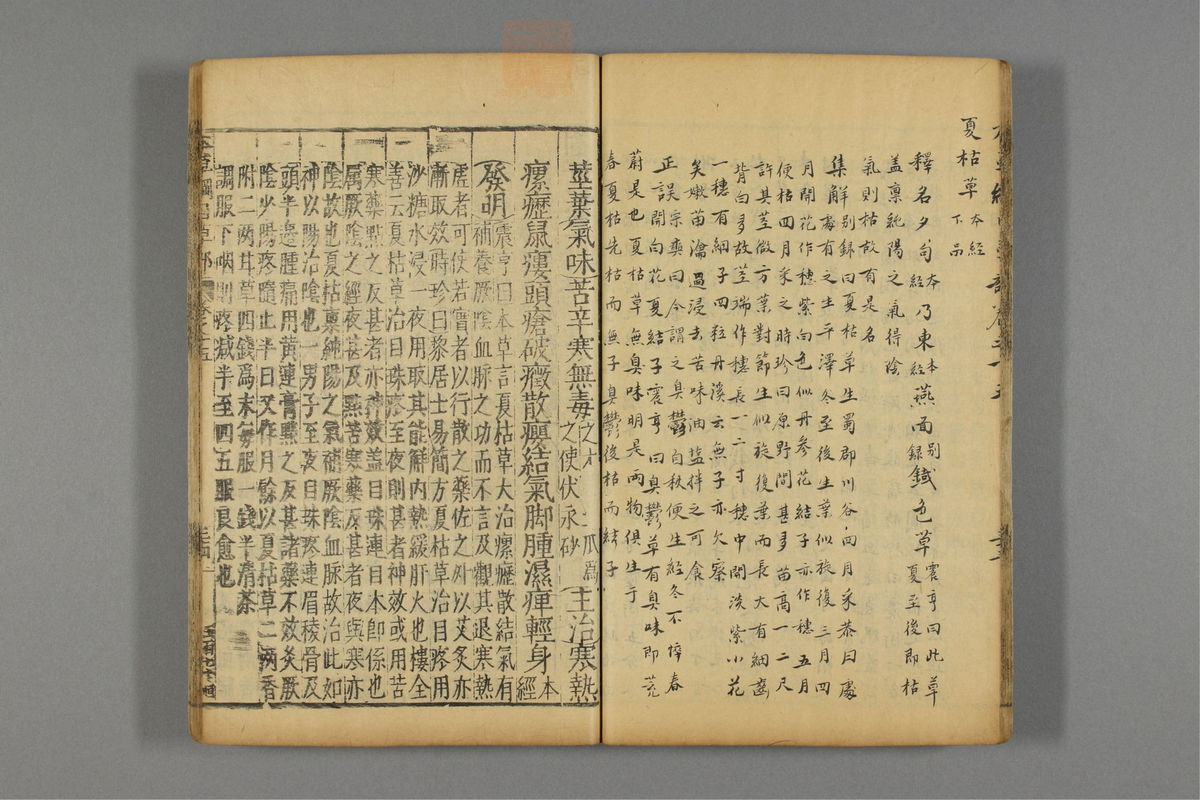 夏枯草 本經下品
釋名夕句本經乃東本經燕面別錄鐵色草震亨曰此草夏至後即枯
蓋稟純陽之氣得陰
氣則枯故有是名
集解別錄曰夏枯草生蜀郡川谷四月采恭曰處
處有之生平澤冬至後生葉似旋復三月四
月開花作穗紫白色似丹參花結子亦作穗五月
便枯四月采之時珍曰原野間甚多苗高一二尺
許其莖微方葉對節生似旋復葉而長大有細齒
背白多故莖端作穗長一二寸穗中開淡紫小花
一穗有細子四粒丹溪云無子亦欠察
矣嫩苗瀹過浸去苦味油盐拌之可食
正誤宗奭曰今謂之臭鬱自秋便生經冬不悴春
開白花夏結子震亨曰臭鬱草有臭味即茺
蔚是也夏枯草無臭味明是兩物俱生于
春夏枯先枯而無子臭鬱後枯而結子
莖葉氣味苦辛寒無毒之才曰土瓜為之使伏汞砂主治寒熱
瘰癧鼠瘻頭瘡破癥散癭結氣脚腫濕痺輕身本經
發明震亨曰本草言夏枯草大治瘰癧散結氣有
補養厥陰血脉之功而不言及觀其退寒熱
虛者可使若實者以行散之藥佐之外以艾灸亦
漸取效時珍曰黎居士易簡方夏枯草治目疼用
沙糖水浸一夜用取其能觧内熱緩肝火也樓全
善云夏枯草治目珠疼至夜則甚者神效或用苦
寒藥點之反甚者亦神效盖目珠連目本即係也
屬厥陰之經夜甚及點苦寒藥反甚者夜與寒亦
陰故也夏枯稟純陽之氣補厥陰血脉故治此如
神以陽治陰也一男子至夜目珠疼連眉稜骨及
頭半邊腫痛用黄連膏點之反甚諸藥不效灸厥
陰少陽疼隨止半日又作月餘以夏枯草二兩香
附二两甘草四錢為末每服一錢半清茶
調服下咽則疼减半至四五服良愈也